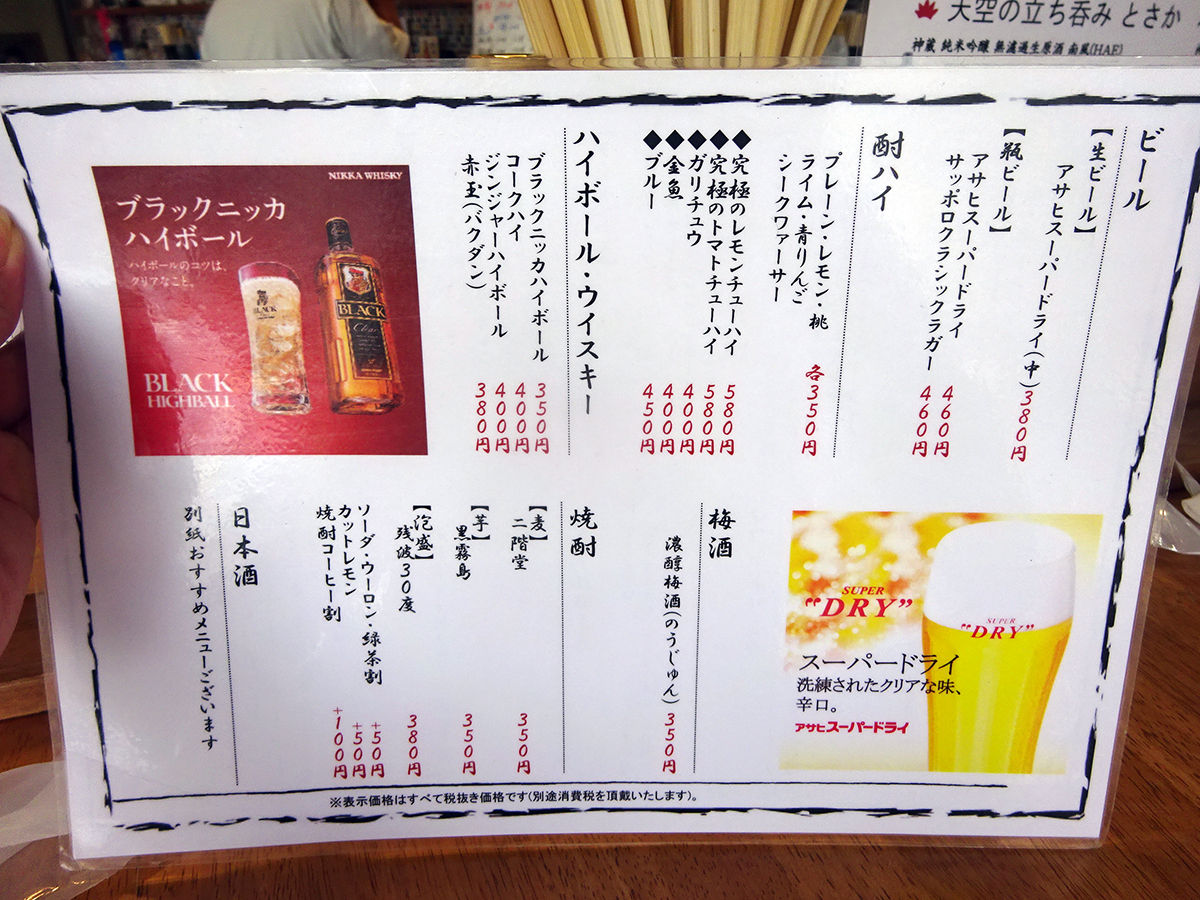 天空の立ち呑み とさか
神蔵 純米吟醸 無濾過生原酒 南風(HAE)
ビール
【生ビール】
アサヒスーパードライ(中)380円
【瓶ビール】
アサヒスーパードライ 460円
サッポロクラシックラガー 460円
酎ハイ
プレーン・レモン・桃
ライム・青りんご 各350円
シークワァーサー
◆究極のレモンチューハイ 580円
◆究極のトマトチューハイ 580円
◆ガリチュウ 400円
◆金魚 400円
◆ブルー 450円
ハイボール・ウイスキー
ブラックニッカハイボール 350円
コークハイ 400円
ジンジャーハイボール 400円
赤玉(バクダン) 380円
NIKKA WHISKY
ブラックニッカ
ハイボール
ハイボールのコツは、
クリアなこと。
BLACK
BLACK
Clear
BLACK
HIGHBALL
SUPER
"DRY"
SUPER
"DRY"
スーパードライ
洗練されたクリアな味、
辛口。
アサヒスーパードライ
梅酒
濃醇梅酒(のうじゅん) 350円
焼酎
【麦】
二階堂 350円
【芋】
黒霧島 350円
【泡盛】
残波30度 380円
ソーダ・ウーロン・緑茶割 +50円
カットレモン +50円
焼酎コーヒー割 +100円
日本酒
別紙おすすめメニューございます
※表示価格はすべて税抜き価格です(別途消費税を頂戴いたします)。